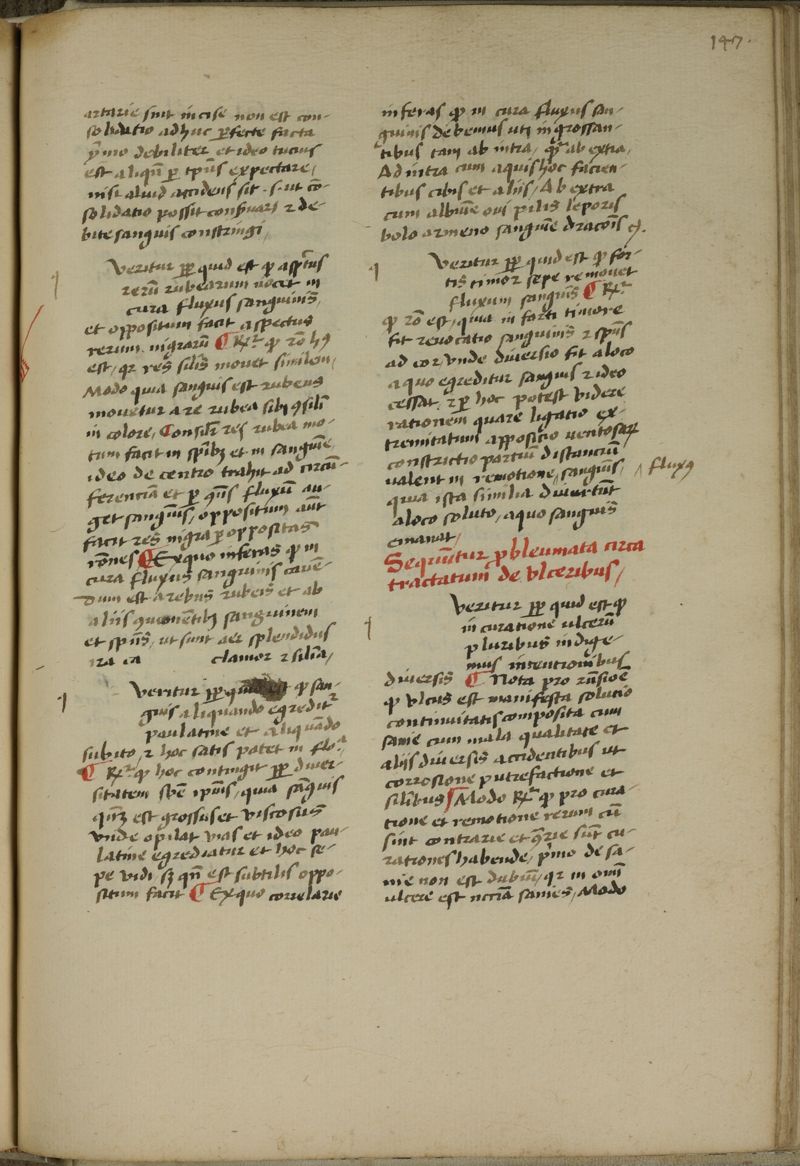 147.
artarie sint incise non est con-
solidatio adhuc p̲fecte facta
ymo debiliter et ideo tucius
est aliqn̄ p̲ tp̄us expectare /
nisi aliud accidens sit .s. ut cō-
solidatio possit conſuari ⁊ de-
bite sanguis constringi /
Veritur ꝓp̲ quid est ꝙ aspc̄tus
rerū rubearum nocet in
cura fluxus sanguinis /
et oppositum facit aspectus
rerum nigrarū ¶ Rͬ ꝙ rō hꝰ
est / qꝛ res silis mouet similem /
Modo quia sanguis est rubeus
mouetur a re rubea sibi ꝯsili
in colore / Consilr res rubea mo-
tum facit in spibꝫ et in sanguīe
ideo de centro trahit ad circū-
ferenciā et p̲ ꝯn̄s fluxū au-
get sanguīs / oppositum aūt
facit res nigra p̲ oppositas
rōnes ¶ Ex quo inferas ꝙ in
cura fluxus sanguinis cauē-
dum est a rebus rubeis et ab
aliis ꝯmouentibꝫ sanguinem
et spūs / ut sunt aer splendidus
ira ca clamor ⁊ silia /
Veritur ꝓp̲ quid est ꝙ san-
guis aliquando egreditͬ
paulatine et aliquādo
subito / ⁊ hoc satis patet in flo.ͣ
¶ Rͬ ꝙ hoc contingit ꝓp̲ diuer-
sitatem sbē ipīus / quia sāguis
qn̄ꝫ est grossus et viscosus
vnde opilat vias et ideo pau-
latine egrediatur et hoc se-
pe vidi / sꝫ qn̄ est subtilis oppo-
situm facit ¶ Ex quo correlarie
inferas ꝙ in cura fluxus san-
guinis debemus uti ingrossan-
tibus tam ab intra / qꝫ ab extra /
Ad intra cum aquis hoc facien-
tibus cibis et aliis / Ab extra
cum albūe oui pilis leporis
bolo armeno sanguīe draconīs ꝛc.
Veritur ꝓp̲ quid est ꝙ for-
tis timor sepe remouet
fluxum sanguīs ¶ Rͬ
ꝙ rō est / quia in forti timore
fit reuocatio sanguinis ⁊ spūs
ad cor / vnde diuersio fit a loco
a quo egreditur sanguis ⁊ ideo
cessat / ⁊ p̲ hoc potest videre
rationem quare ligatio ex-
tremitatum appositio ventosaꝝ
constrictio partiū distanciū
valent in remotione / sanguīs / ^ fluxꝰ
quia ista similia diuertūt
a loco soluto / a quo sanguis
emanat /
Sequūtur ꝓbleumata circa
tractatum de vlceribus /
Veritur ꝓp̲ quid est ꝙ
in curatione ulcerū
pluribus indige-
mus intentionibus
diuersis ¶ Nota pro rn̄sioē
ꝙ vlcus est manifesta solutio
continuitatis composita cum
sanie cum mala qualitate et
aliis diuersis accidentibus ut
corrosione putrefactione et
silibus / Modo Rͬ ꝙ pro cura-
tione et remotione rerum cū
sint contrarie et ꝯrie sūt cu-
rationes habende / pͥmo de sa-
nie non est dubiū / qꝛ in omī
ulcere est nccīa sanies / Modo